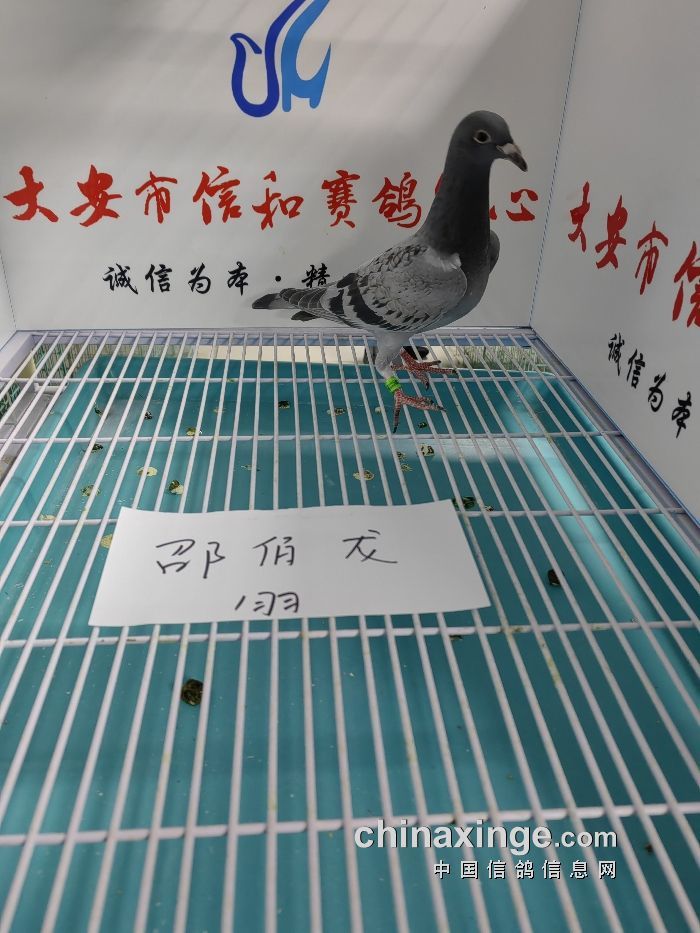 大安市信和赛鸽 心
诚信为本·精
大安市信
诚信为本
邵俏龙
1羽
chinaxinge.com
中国信鸽信息网